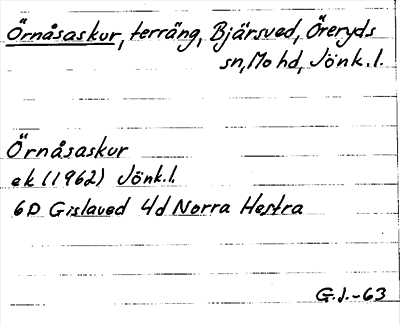 Örnåsaskur, terräng, Bjärsved, Öreryds
sn, Mo hd, Jönk.l.
Örnåsaskur
ek (1962) Jönk.l.
6D Gislaved 4d Norra Hestra
G.J.-63